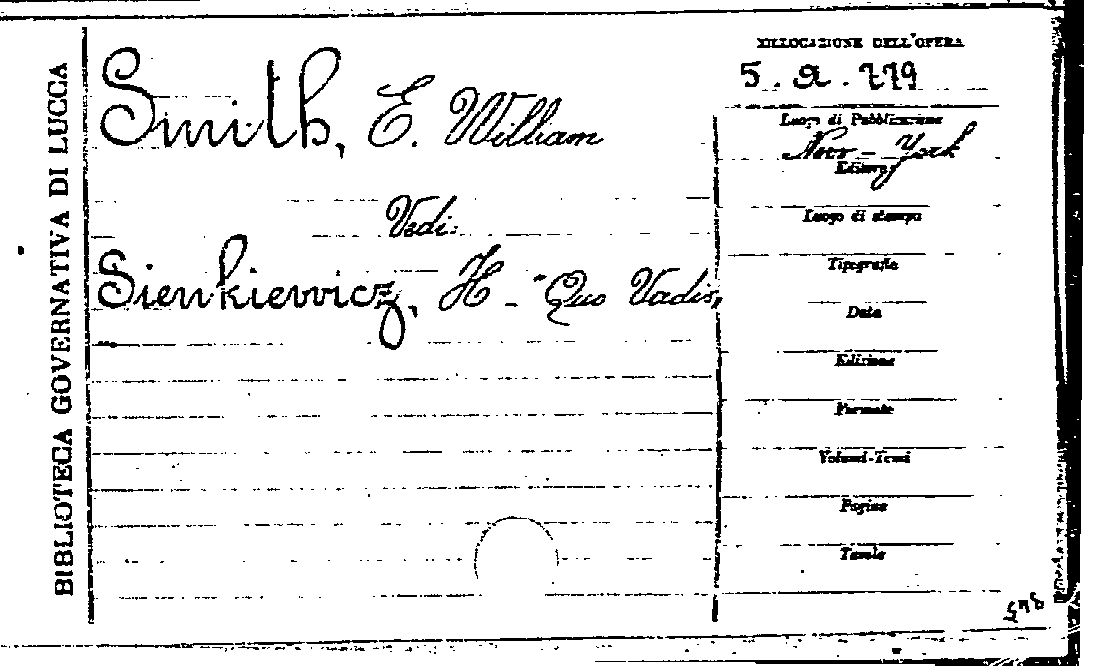 BIBLIOTECA GOVERNATIVA DI LUCCA
Smith, E. William
Vedi:
Sienkiewicz, H - "Quo Vadis,
COLLOCAZIONE DELL'OPERA
5. a. 779
Luogo di Pubblicazione
New-York
Editore
Luogo di stampa
Tipografia
Data
Edizione
Formato
Volumi-Tomi
Pagine
Tavole